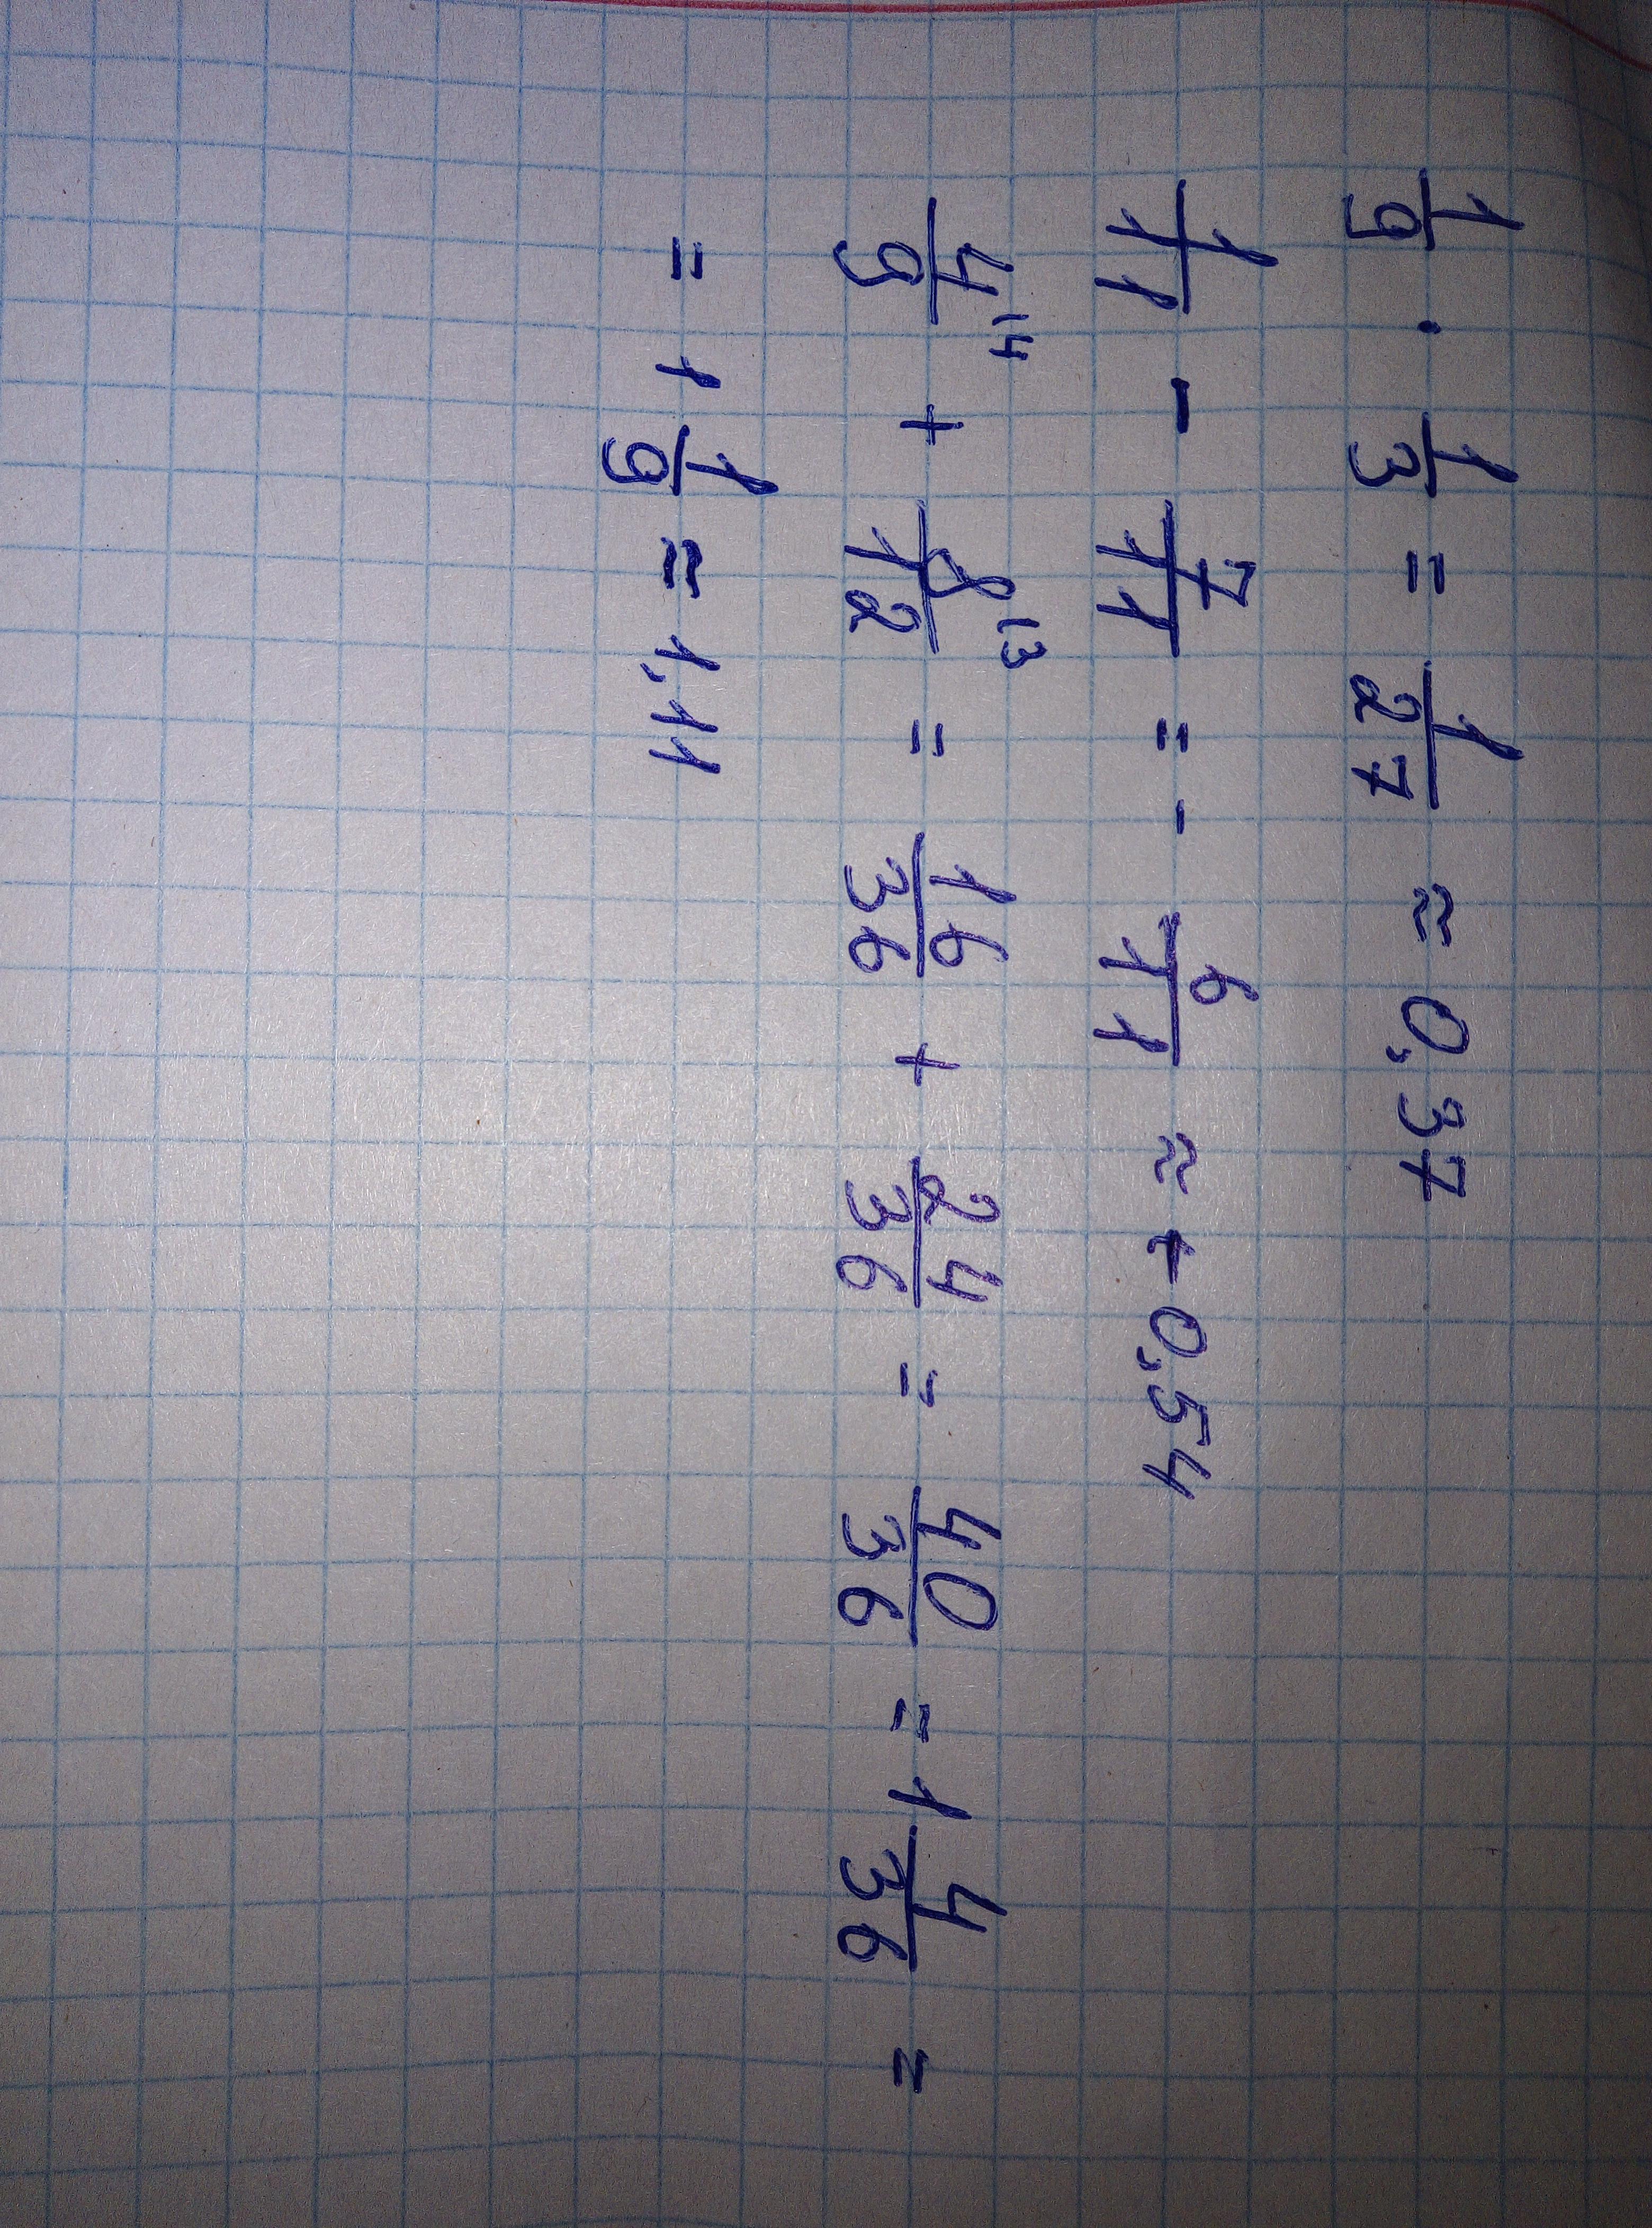 1/9 · 1/3 = 1/27 ≈ 0,37
1/11 - 7/11 = - 6/11 ≈ - 0,54
4/9 ⁽⁴ + 8/12 ⁽³ = 16/36 + 24/36 = 40/36 = 1 4/36 =
= 1 1/9 ≈ 1,11